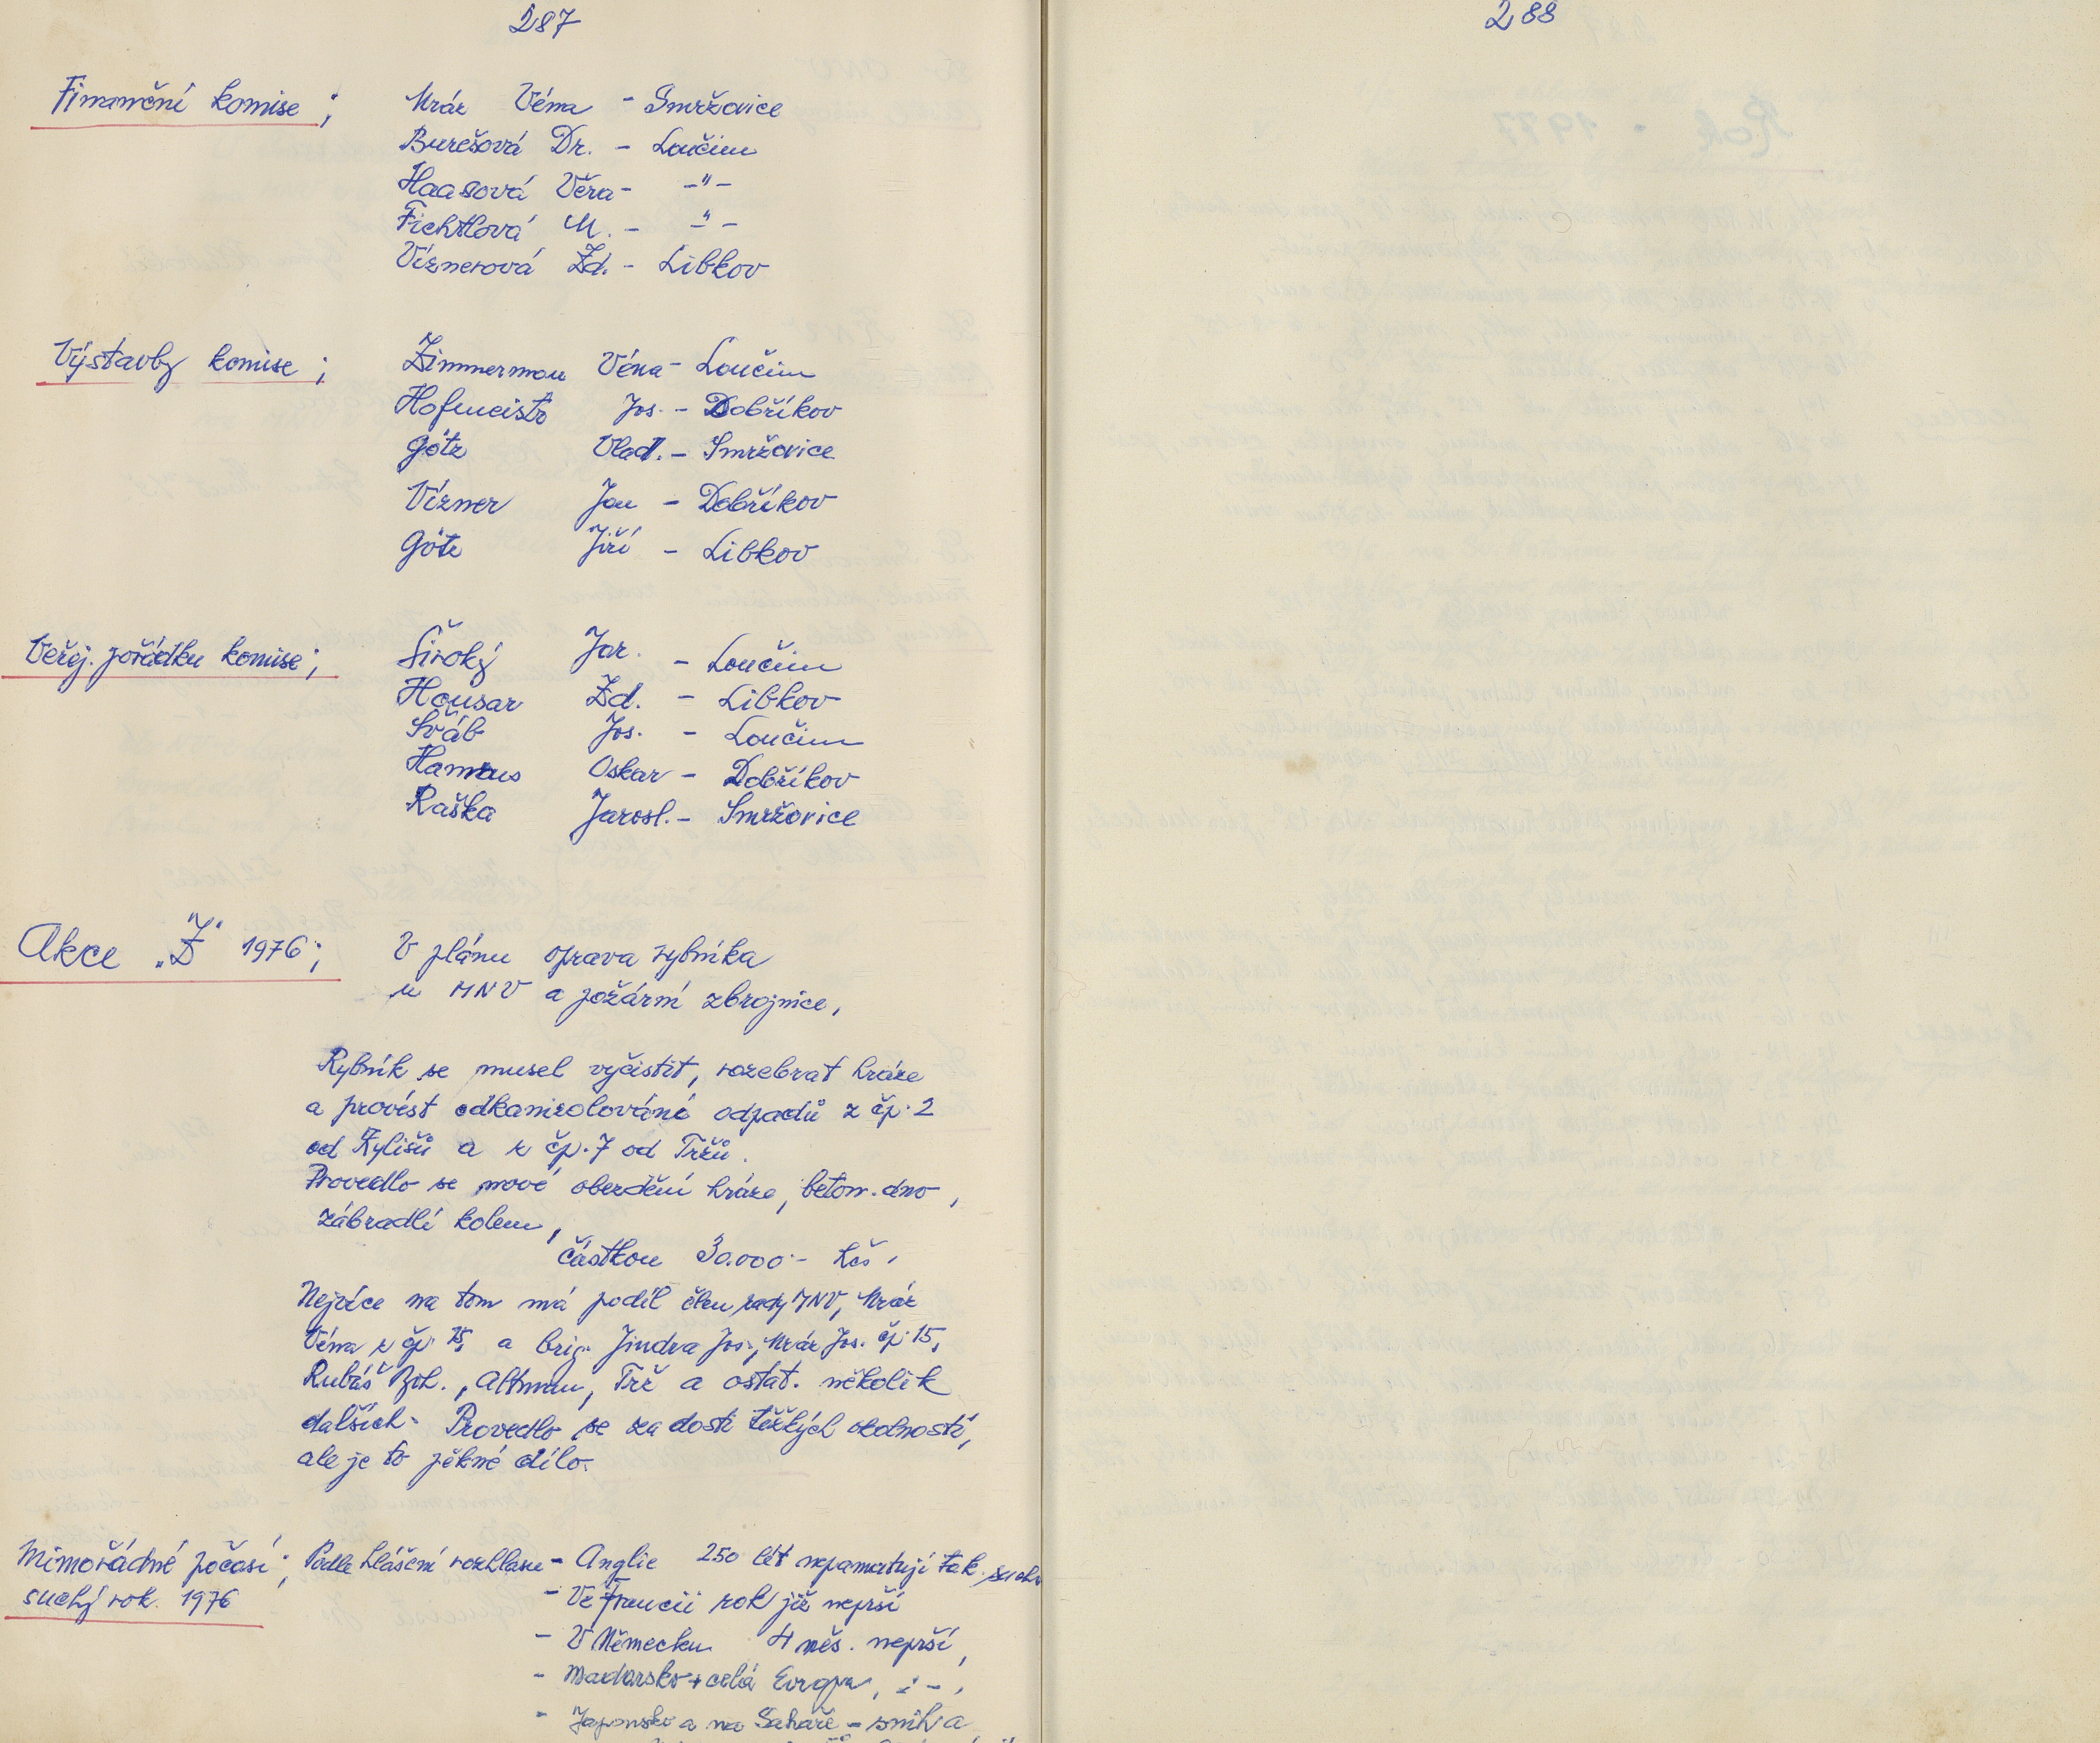 287
Finanční komise;
Mráz Véna - Smržovice
Burešová Dr. - Loučim
Haasová Věra - -"-
Fichtlová M. - -"-
Víznerová Zd. - Libkov
Výstavby komise;
Zimmerman Véna - Loučim
Hofmeistr Jos. - Dobříkov
Götz Vlad. - Smržovice
Vízner Jan - Dobříkov
Götz Jiří - Libkov
Veřej. pořádku komise;
Široký Jar. - Loučim
Housar Zd. - Libkov
Šváb Jos. - Loučim
Hamaus Oskar - Dobříkov
Raška Jarosl. - Smržovice
Akce „Z" 1976;
V plánu oprava rybníka
u MNV a požární zbrojnice,
Rybník se musel vyčistit, rozebrat hráze
a provést odkanalolování odpadů z čp. 2
od Kylišů a z čp. 7 od Tržů.
Provedlo se nové obezdění hráze, beton. dno,
zábradlí kolem,
částkou 30.000.- Kčs,
Nejvíce na tom má podíl člen rady MNV, Mráz
Véna z čp. 15, a brig. Jindra Jos., Mráz Jos. čp. 15,
Rubáš Boh., Altman, Trž a ostat. několik
dalších. Provedlo se za dosti těžkých okolností,
ale je to pěkné dílo.
Mimořádné počasí;
suchý rok. 1976
Podle hlášení rozhlasu - Anglie 250 lét nepamatují tak. sucho
- Ve Francii rok již neprší
- V Německu 4 měs. neprší,
- Maďarsko + celá Evropa, -"-,
- Japonsko a na Sahaře - sníh a
288